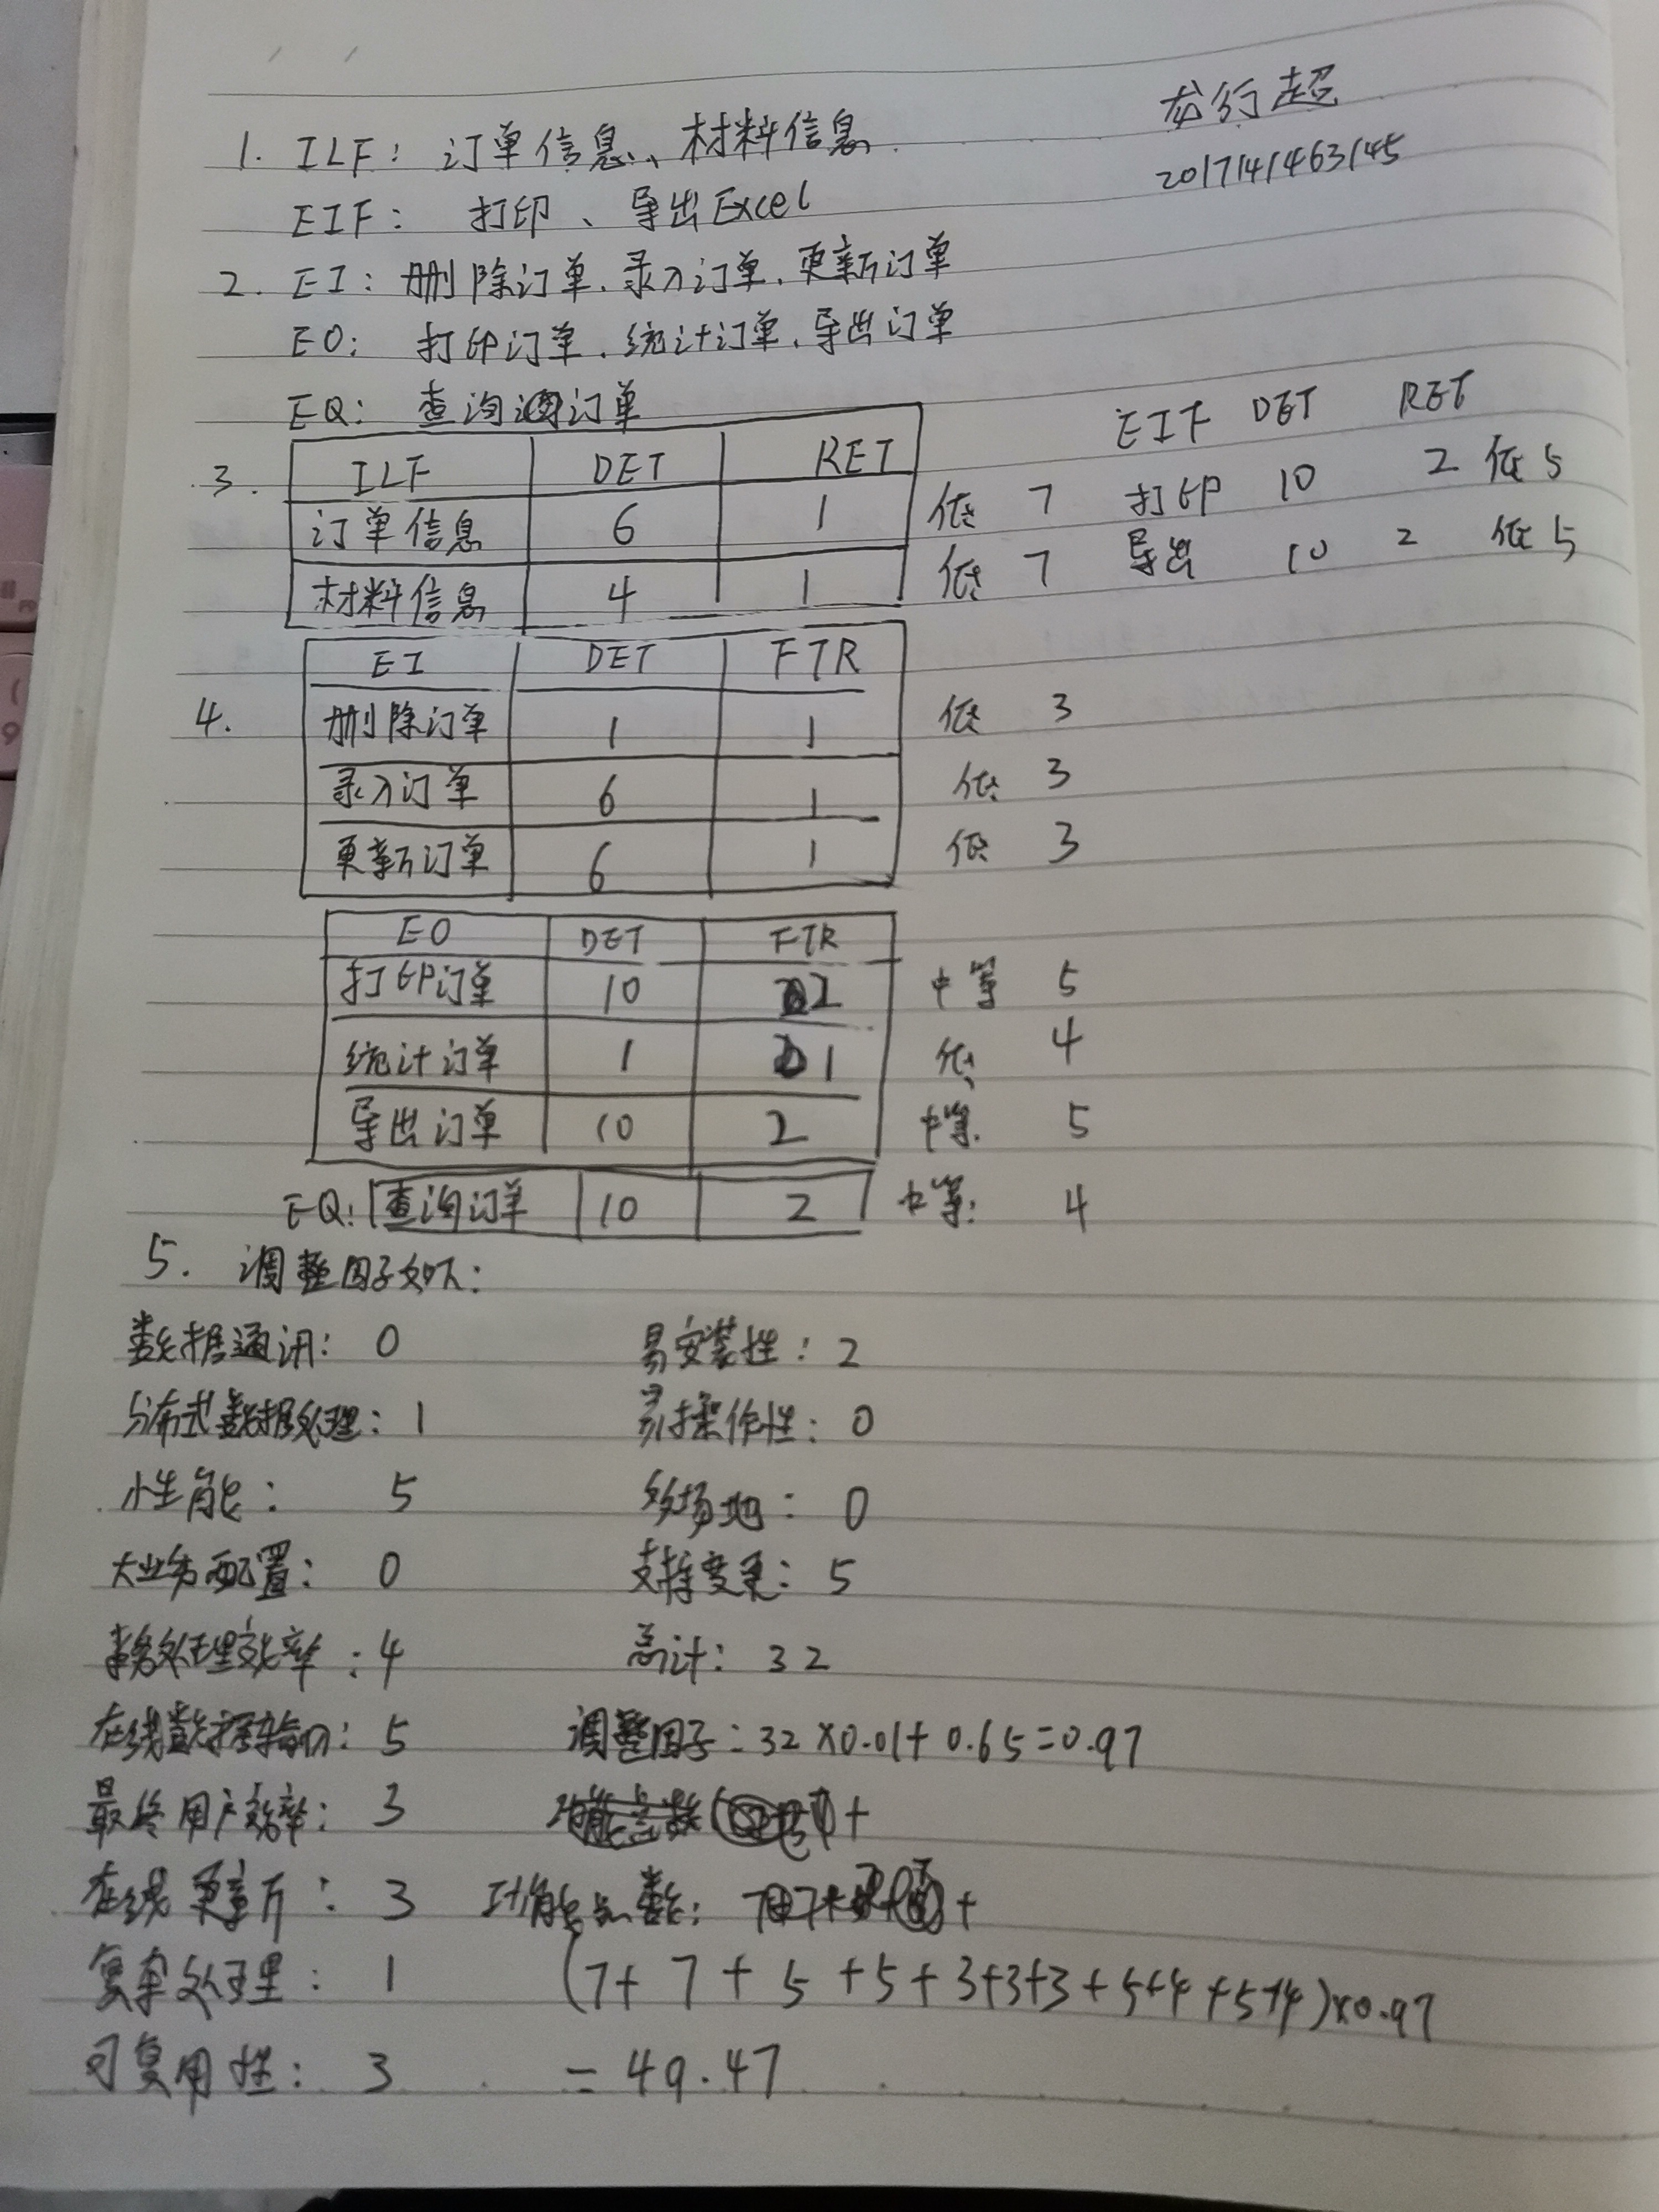 龙行超
2017141463145
1. ILF: 订单信息、材料信息
EIF: 打印、导出Excel
2. EI: 删除订单、录入订单、更新订单
EO: 打印订单、统计订单、导出订单
EQ: 查询订单
3.
ILF DET RET
订单信息 6 1 低 7
材料信息 4 1 低 7
EIF DET RET
打印 10 2 低 5
导出 10 2 低 5
4.
EI DET FTR
删除订单 1 1 低 3
录入订单 6 1 低 3
更新订单 6 1 低 3
EO DET FTR
打印订单 10 2 中等 5
统计订单 1 1 低 4
导出订单 10 2 中等 5
EQ: 查询订单 10 2 中等: 4
5. 调整因子如下:
数据通讯: 0
分布式数据处理: 1
性能: 5
大业务配置: 0
事务处理效率: 4
在线数据输入: 5
最终用户效率: 3
在线更新: 3
复杂处理: 1
可复用性: 3
易安装性: 2
易操作性: 0
多场地: 0
支持变更: 5
总计: 32
调整因子: 32×0.01+0.65=0.97
功能点数:
(7+7+5+5+3+3+3+5+4+5+4)×0.97
=49.47